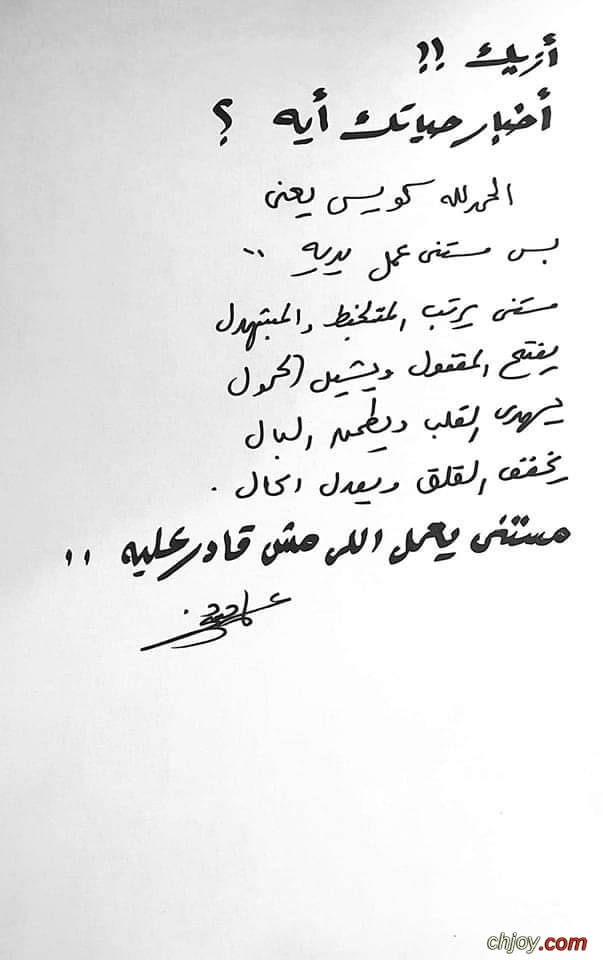 أزيك !!
أخبار حياتك أيه ؟
الحمد لله كويس يعنى
بس مستنى عمل يديه ..
مستنى يرتب المتلخبط والمتبهدل
يفتح المقفول ويشيل الحمول
يهدى القلب ويطمن البال
يخفف القلق ويعدل الحال .
مستنى يعمل اللى مش قادر عليه !!
chjoy.com